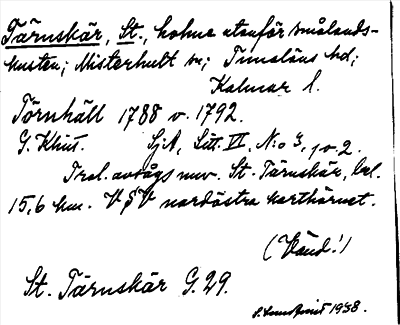 Tärnskär, St., holme utanför smålands-
kusten; Misterhult sn; Tunaläns hd;
Kalmar l.
Törnhäll 1788 v. 1792.
G. Khut. SjA, Litt. VI, N:o 3, jo. 2.
Trol. avsågs nuv. St. Tärnskär, bel.
15,6 km. V § V nordöstra karthörnet.
(Vänd!)
St. Tärnskär G. 29.
1938.